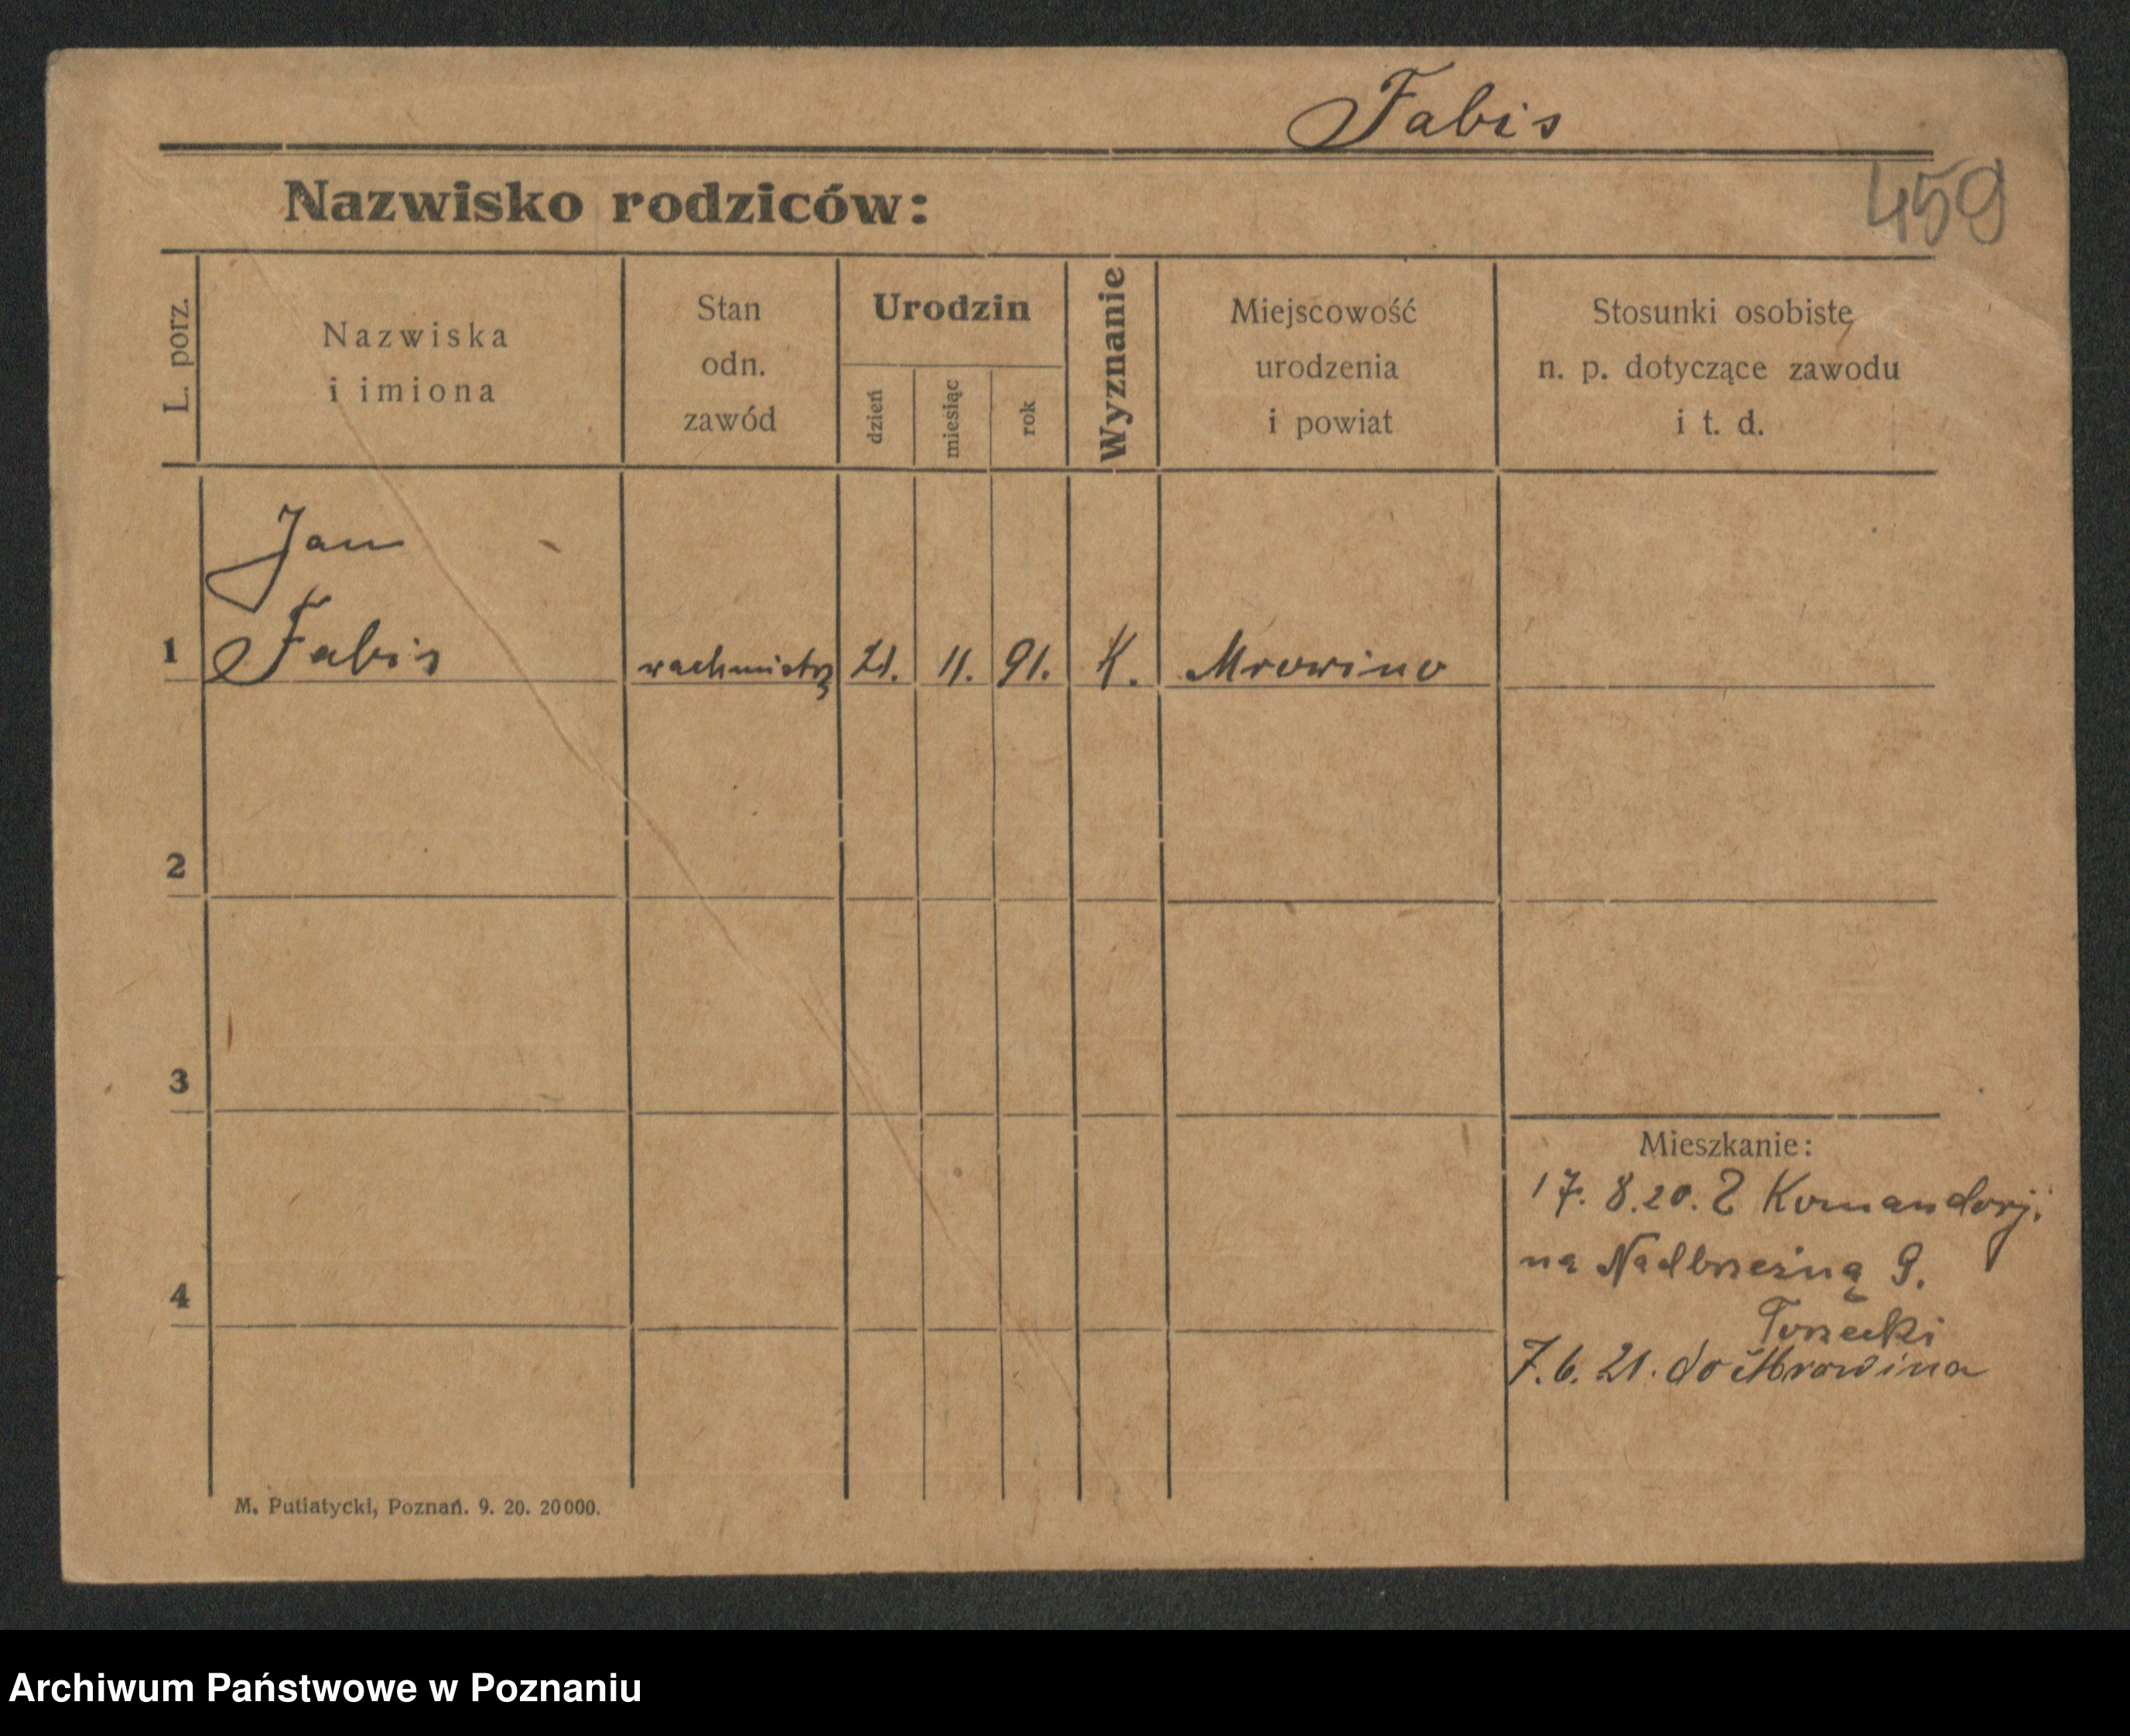 Fabis
459
Nazwisko rodziców:
L. porz.
Nazwiska
i imiona
Stan
odn.
zawód
Urodzin
dzień
miesiąc
rok
Wyznanie
Miejscowość
urodzenia
i powiat
Stosunki osobiste
n. p. dotyczące zawodu
i t. d.
Jan
1 Fabis wachmistrz 21. 11. 91. K. Mrowino
2
3
Mieszkanie:
17. 8. 20. Z Komandorji
na Nadbrzeżną 9.
4
7. 6. 21. do Mrowina
M. Putiatycki, Poznań. 9. 20. 20000.
Archiwum Państwowe w Poznaniu